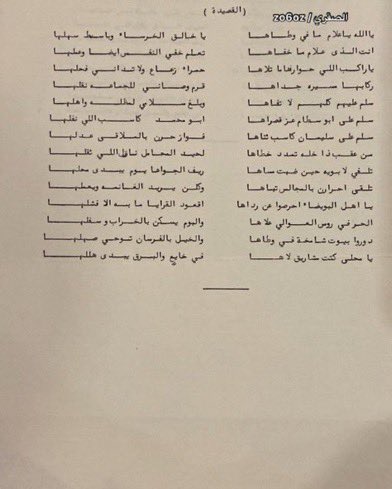 المنقري / zo6oz
( القصيدة )
يا الله ياعلام ما في وطاها يا خالق الخرساء وباسط سهلها
انت الذي علام ما خفاها تعلم خفي النفس ايضا وعطبها
ياراكب اللي حوارها ما تلاها حمراء زعاع ولا تداني فحلها
ركابها مسيره جداها قرم وصاني للجماعه نقلها
سلم عليهم كلهم لا تفاها وبلغ سلامي لمظله واهلها
سلم على ابو سطام عز قصراها ابو محمد كاسب اللي نفلها
سلم على سليمان كاسب ثناها فواز حرن بالملاقى عدلها
من عقب ذا خله تمدد خطاها لحيد المحامل ناقل اللي ثقلها
تلفي لابويه حين غبت ساها ريف الجواها يوم يبدى محلها
تلقى احرارن بالمجالس تباها وكلن يريد الغانمه ويعطها
يا اهل البويضاء احرصوا عن رداها اقعود القرايا ما به الا فشلها
الحر في روس العوالي علاها واليوم يسكن بالخراب وسفلها
دوروا بيوت شامخة في وطاها والخيل بالفرسان توحي صهلها
يا محلى كنت مشاريق لاها في خايع والبرق يبدى هللها